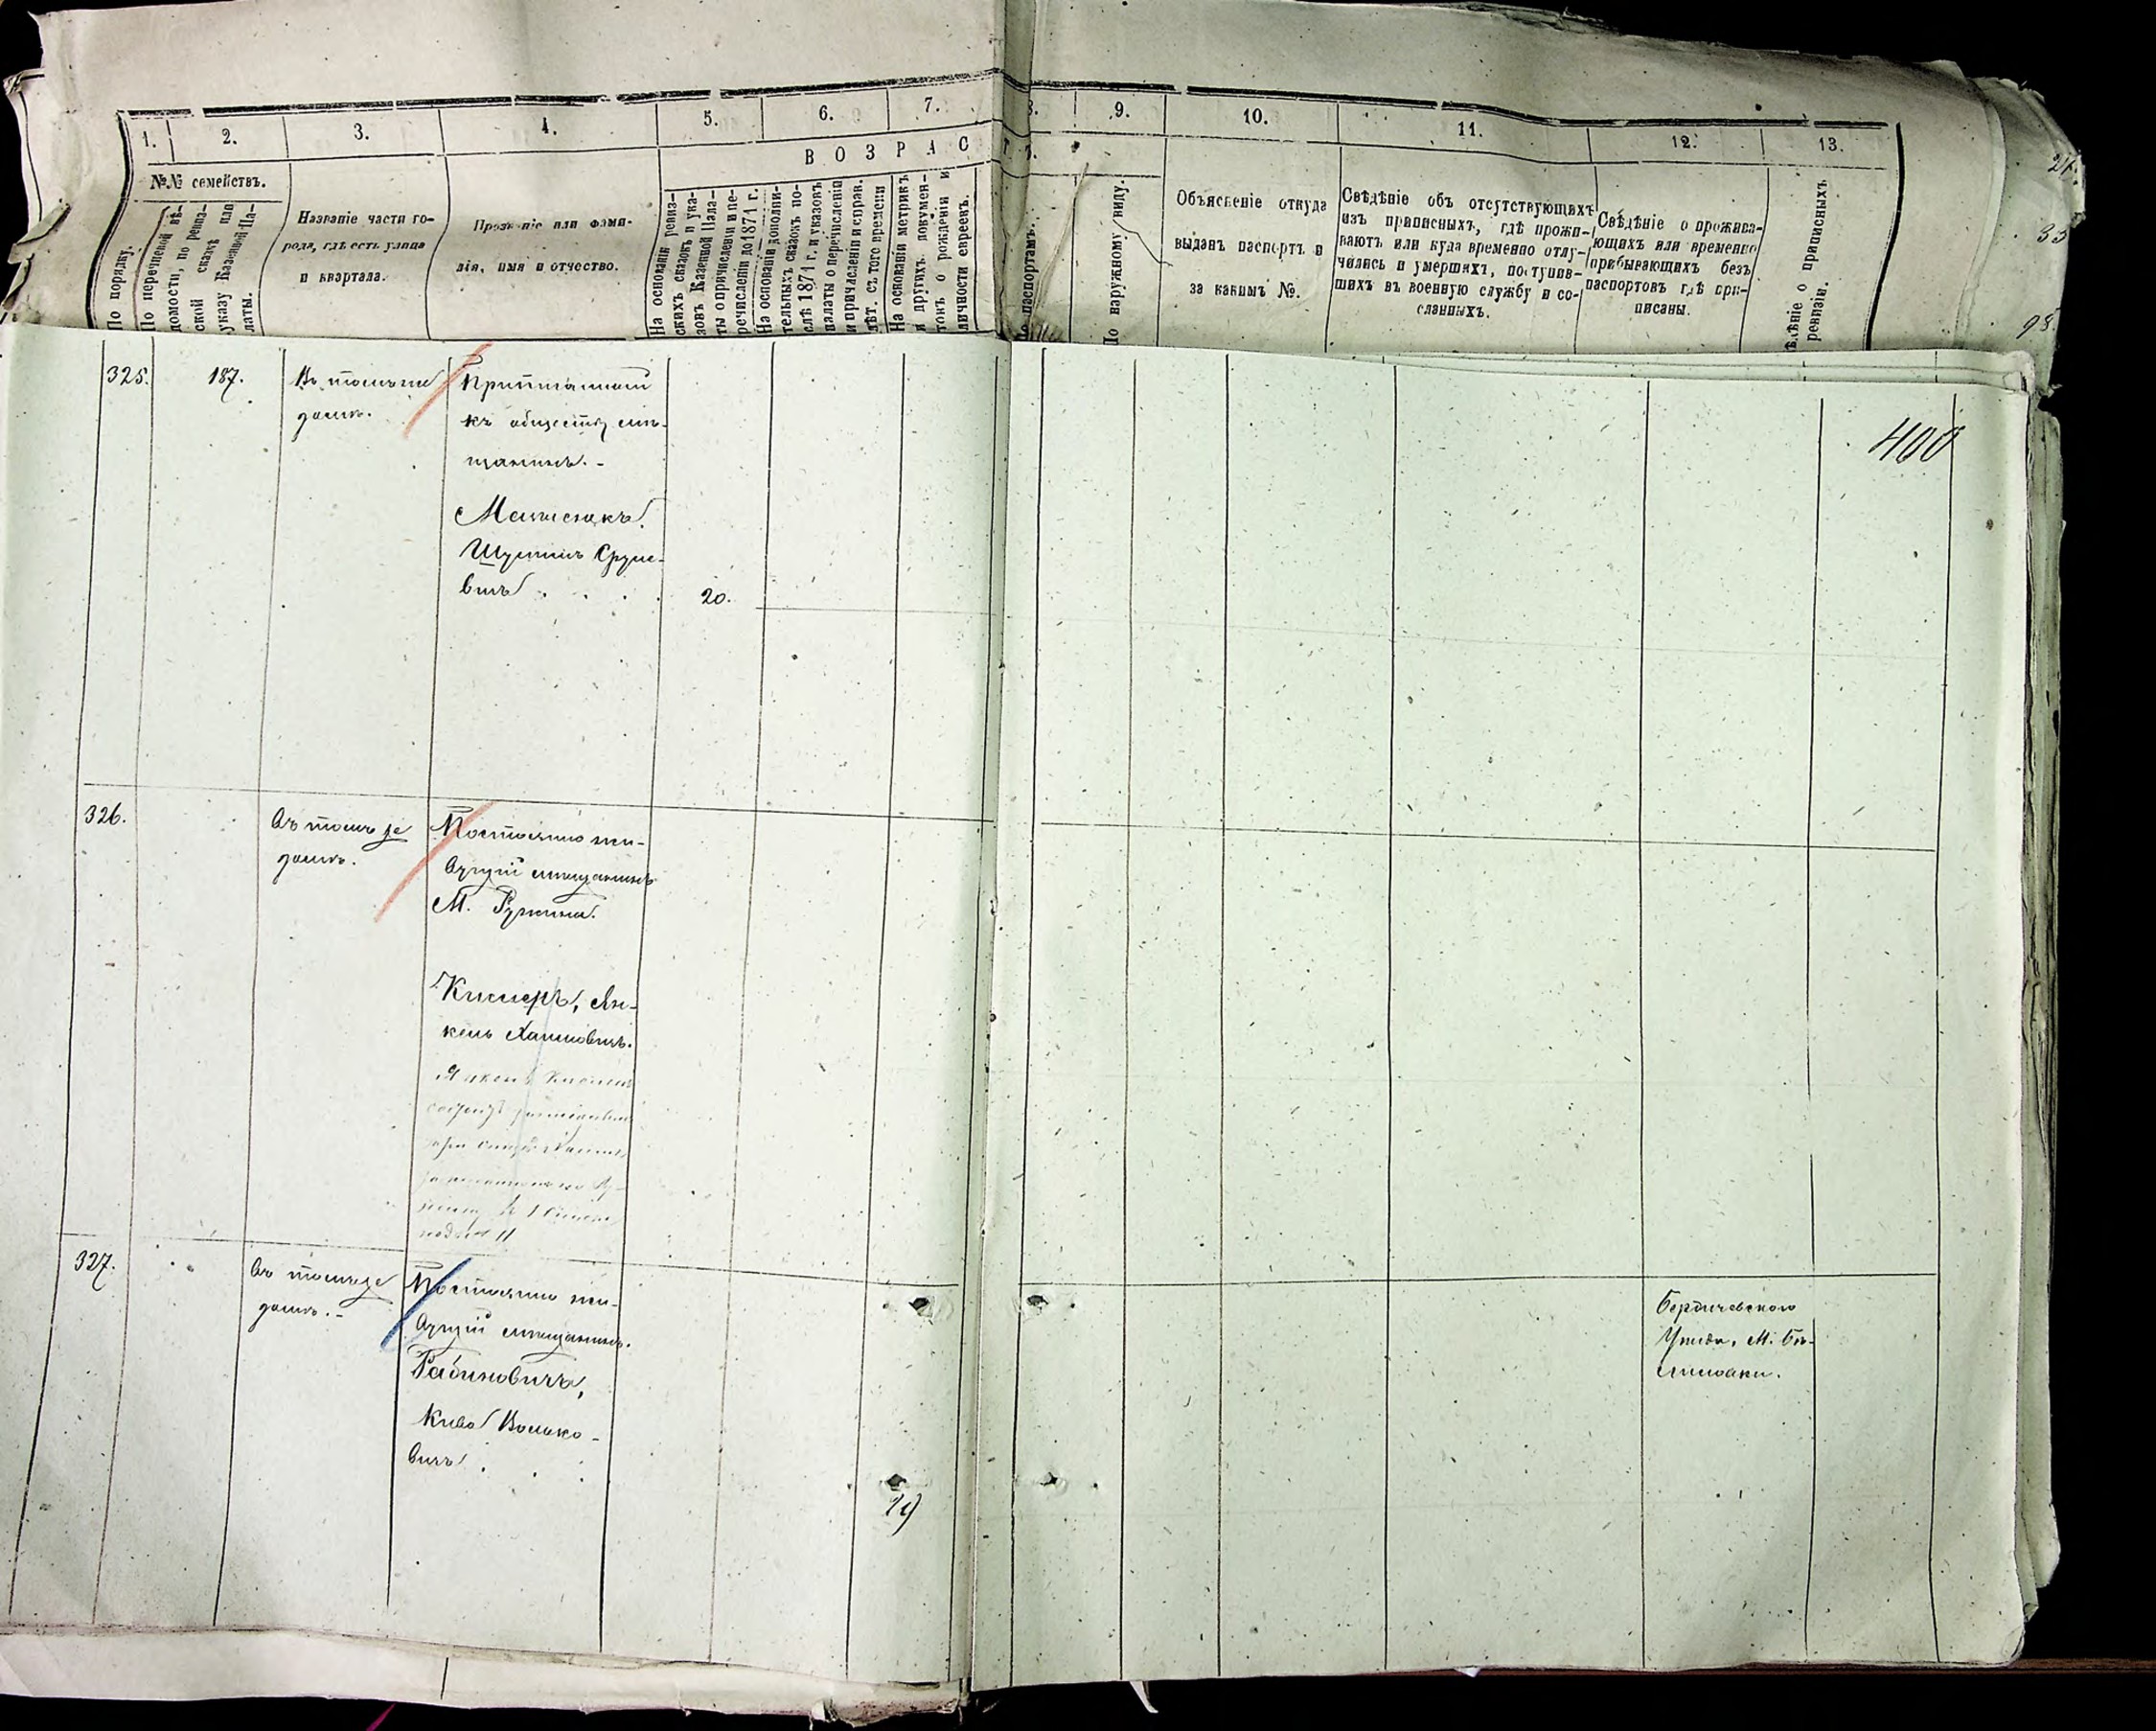 1.
2.
3.
4.
5.
6.
7.
8.
9.
10.
11.
12.
13.
ВОЗРАСТ
№№ семействъ.
По порядку.
По перечневой вѣ-
домости, по ревиз-
ской сказкѣ или
указу Казенной Па-
латы.
Названіе части го-
рода, гдѣ есть улица
и квартала.
Прозваніе или фами-
лія, имя и отчество.
На основаніи ревиз-
скихъ сказокъ и ука-
зовъ Казенной Пала-
ты о причисленіи и пе-
речисленіи до 1871 г.
На основаніи дополни-
тельныхъ сказокъ по-
слѣ 1871 г. и указовъ
палаты о перечисленіи
и причисленіи и справ.
лѣт. съ того времени
На основаніи метрикъ
и другихъ докумен-
товъ о рожденіи и
личности евреевъ.
паспортамъ.
По наружному виду.
Объясненіе откуда
выданъ паспортъ и
за какимъ №.
Свѣдѣніе объ отсутствующихъ
изъ приписныхъ, гдѣ прожи-
ваютъ или куда временно отлу-
чились и умершихъ, поступив-
шихъ въ военную службу и со-
сланныхъ.
Свѣдѣніе о прожива-
ющихъ или временно
прибывающихъ безъ
паспортовъ гдѣ при-
писаны.
о приписныхъ
ревизіи.
33
98
400
325.
187.
Въ томъ же
домѣ.
Приписанный
къ обществу мѣ-
щанинъ. -
Шулимъ Сруле-
вичъ
20.
326.
Въ томъ же
домѣ.
Постоянно жи-
вущій мѣщанинъ
М. Ружина.
Киснеръ, Ян-
кель Хаимовичъ.
327.
Въ томъ же
домѣ. -
Постоянно жи-
вущій мѣщанинъ.
Рабиновичъ,
Кива Волько-
вичъ
19
Бердичевского
Уѣзда, М. Бѣ-
лиловки.